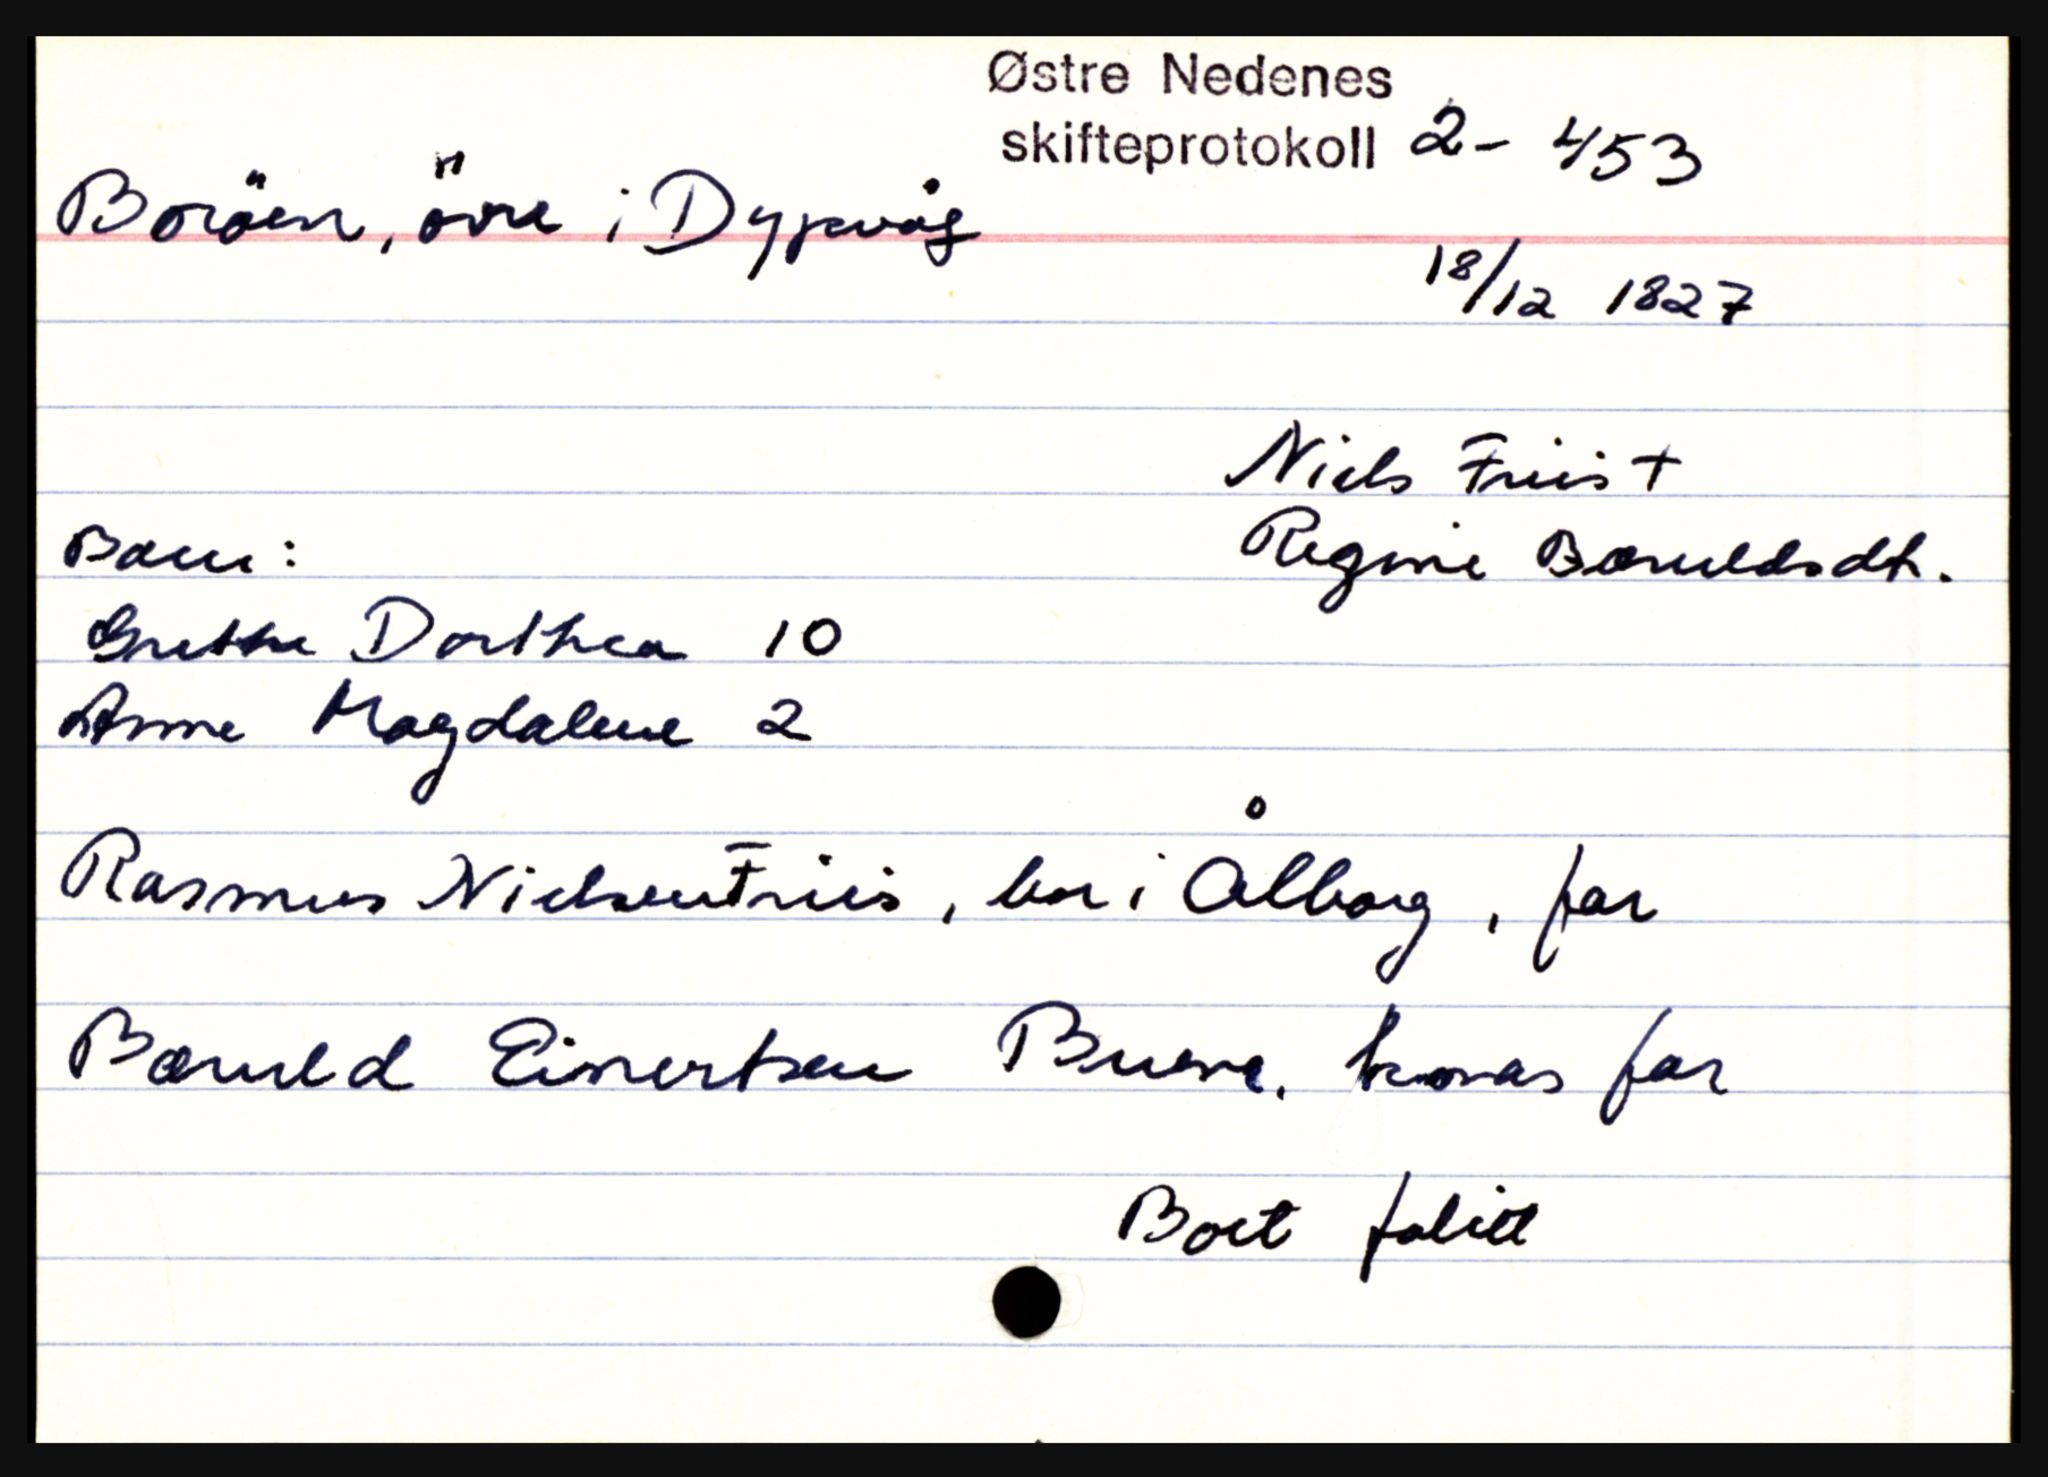 Østre Nedenes
skifteprotokoll 2- 453
Boröen, övre i Dypvåg
18/12 1827
Niels Friis †
Regine Bæruldsdt.
Barn:
Grethe Dorthea 10
Anne Magdalene 2
Rasmus Nielsen Friis, bor i Ålborg, far
Bæruld Einertsen Buene, konas far
Boet falitt